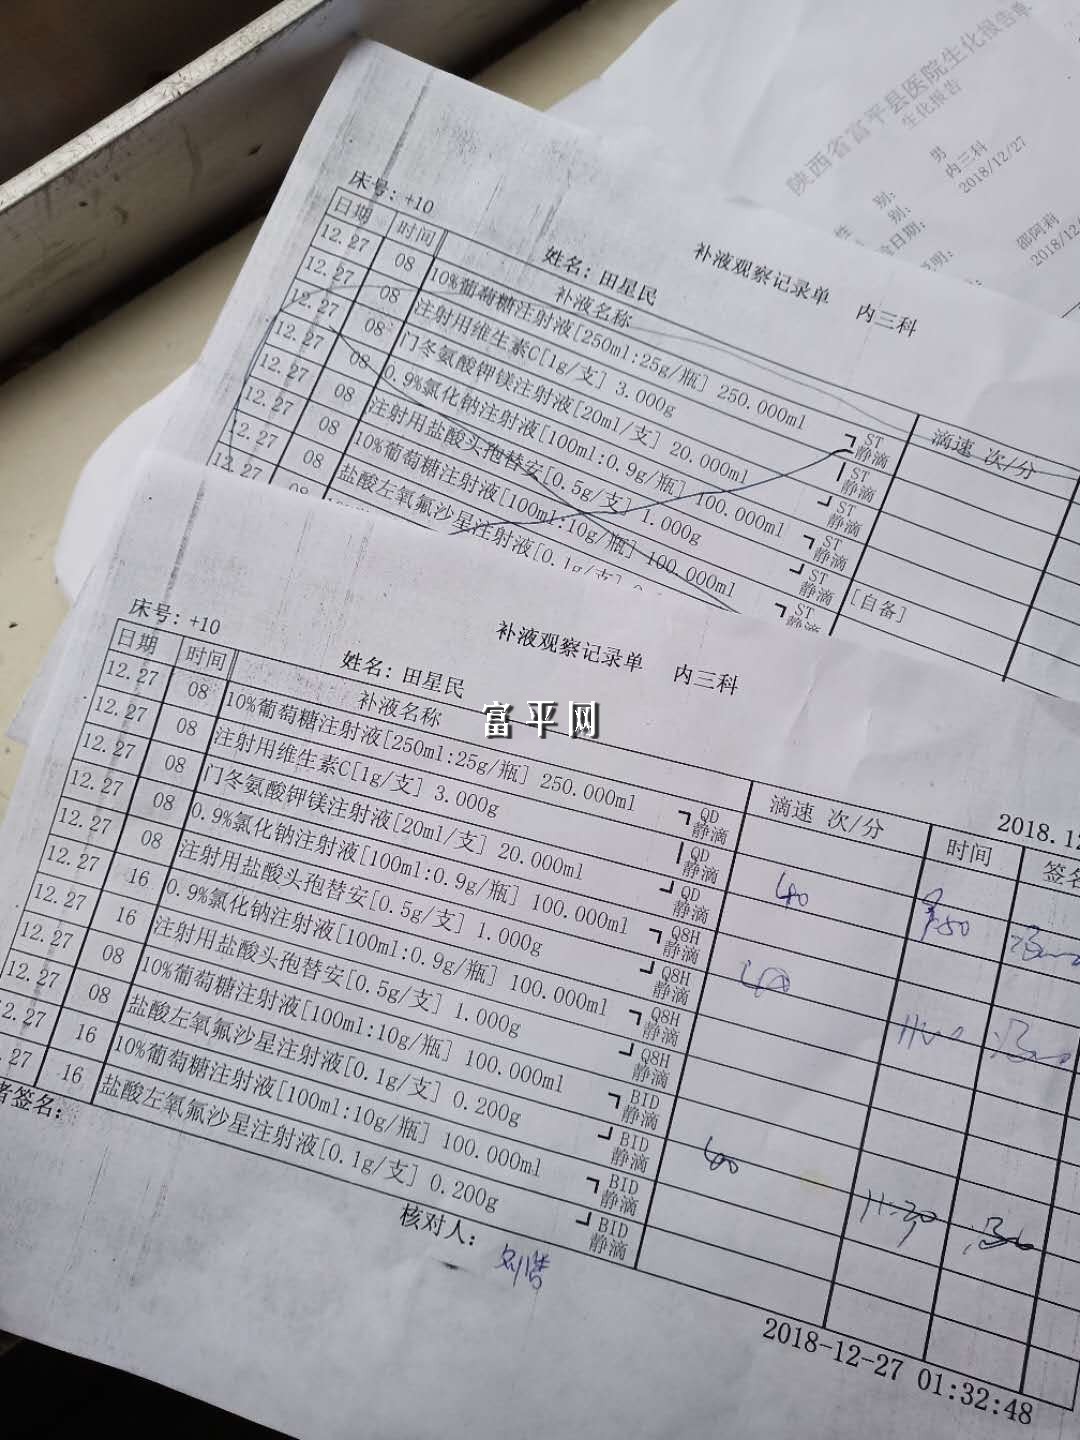 陕西省富平县医院生化报告单
生化报告
性 别: 男
别: 内三科
日期: 2018/12/27
邵阿莉
补液观察记录单 内三科
床号: +10 姓名: 田星民
日期 时间 补液名称 滴速 次/分
12.27 08 10%葡萄糖注射液[250ml:25g/瓶] 250.000ml ST 静滴
12.27 08 注射用维生素C[1g/支] 3.000g ST 静滴
12.27 08 门冬氨酸钾镁注射液[20ml/支] 20.000ml ST 静滴
12.27 08 0.9%氯化钠注射液[100ml:0.9g/瓶] 100.000ml ST 静滴
12.27 08 注射用盐酸头孢替安[0.5g/支] 1.000g ST 静滴 [自备]
12.27 08 10%葡萄糖注射液[100ml:10g/瓶] 100.000ml ST 静滴
12.27 08 盐酸左氧氟沙星注射液[0.1g/支]
补液观察记录单 内三科
床号: +10 姓名: 田星民 2018.12
日期 时间 补液名称 滴速 次/分 时间 签名
12.27 08 10%葡萄糖注射液[250ml:25g/瓶] 250.000ml QD 静滴
12.27 08 注射用维生素C[1g/支] 3.000g QD 静滴
12.27 08 门冬氨酸钾镁注射液[20ml/支] 20.000ml QD 静滴
12.27 08 0.9%氯化钠注射液[100ml:0.9g/瓶] 100.000ml Q8H 静滴
12.27 08 注射用盐酸头孢替安[0.5g/支] 1.000g Q8H 静滴
12.27 16 0.9%氯化钠注射液[100ml:0.9g/瓶] 100.000ml Q8H 静滴
12.27 16 注射用盐酸头孢替安[0.5g/支] 1.000g Q8H 静滴
12.27 08 10%葡萄糖注射液[100ml:10g/瓶] 100.000ml BID 静滴
12.27 08 盐酸左氧氟沙星注射液[0.1g/支] 0.200g BID 静滴
2.27 16 10%葡萄糖注射液[100ml:10g/瓶] 100.000ml BID 静滴
.27 16 盐酸左氧氟沙星注射液[0.1g/支] 0.200g BID 静滴
者签名: 核对人:
2018-12-27 01:32:48
富平网